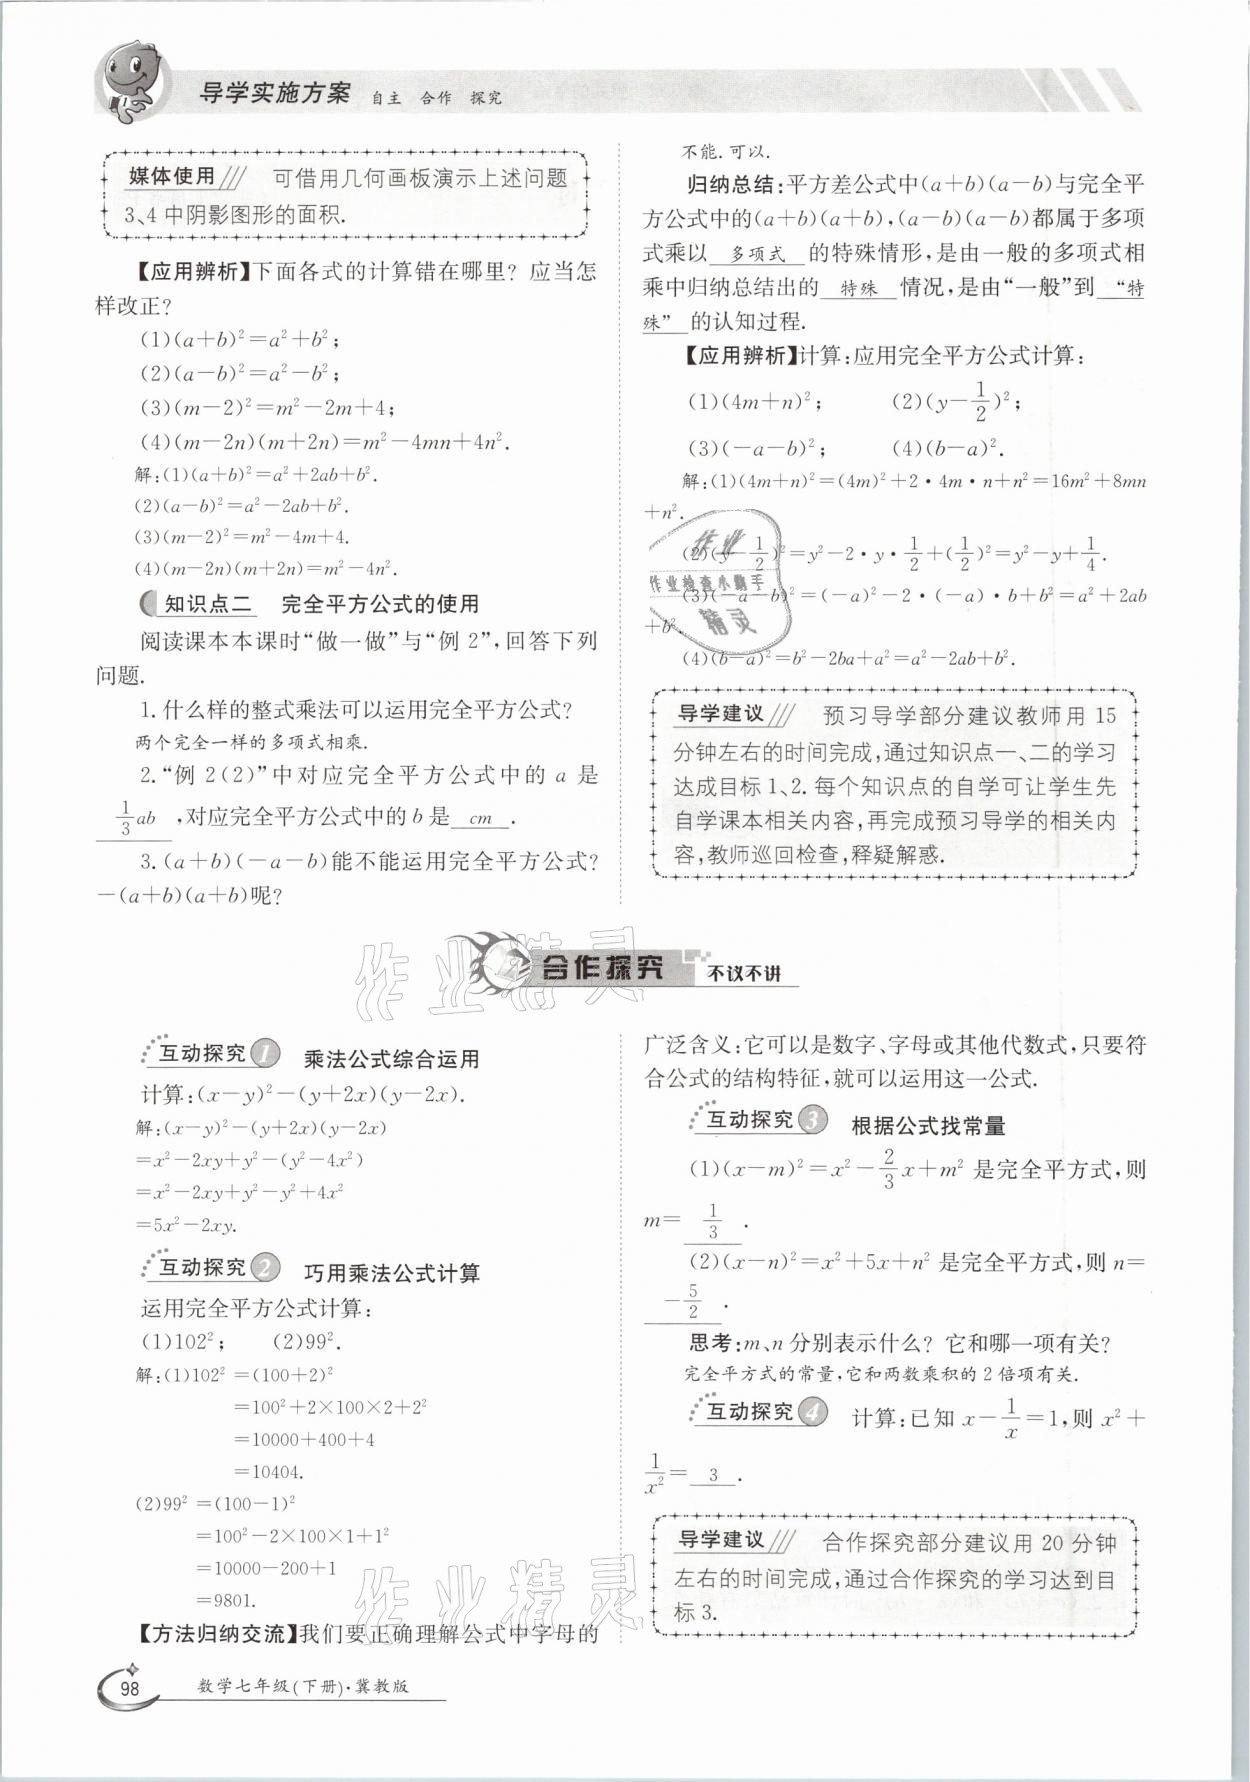 导学实施方案 自主 合作 探究
媒体使用 可借用几何画板演示上述问题
3、4中阴影图形的面积.
【应用辨析】下面各式的计算错在哪里？应当怎
样改正？
(1)(a+b)²=a²+b²;
(2)(a-b)²=a²-b²;
(3)(m-2)²=m²-2m+4;
(4)(m-2n)(m+2n)=m²-4mn+4n².
解:(1)(a+b)²=a²+2ab+b².
(2)(a-b)²=a²-2ab+b².
(3)(m-2)²=m²-4m+4.
(4)(m-2n)(m+2n)=m²-4n².
知识点二 完全平方公式的使用
阅读课本本课时“做一做”与“例2”,回答下列
问题.
1.什么样的整式乘法可以运用完全平方公式?
两个完全一样的多项式相乘.
2.“例2(2)”中对应完全平方公式中的a是
1/3 ab ,对应完全平方公式中的b是 cm .
3.(a+b)(-a-b)能不能运用完全平方公式?
-(a+b)(a+b)呢?
不能.可以.
归纳总结:平方差公式中(a+b)(a-b)与完全平
方公式中的(a+b)(a+b),(a-b)(a-b)都属于多项
式乘以 多项式 的特殊情形,是由一般的多项式相
乘中归纳总结出的 特殊 情况,是由“一般”到 “特
殊” 的认知过程.
【应用辨析】计算:应用完全平方公式计算:
(1)(4m+n)²; (2)(y-1/2)²;
(3)(-a-b)²; (4)(b-a)².
解:(1)(4m+n)²=(4m)²+2·4m·n+n²=16m²+8mn
+n².
(2)(y-1/2)²=y²-2·y·1/2+(1/2)²=y²-y+1/4.
(3)(-a-b)²=(-a)²-2·(-a)·b+b²=a²+2ab
+b².
(4)(b-a)²=b²-2ba+a²=a²-2ab+b².
作业
作业检查小助手
精灵
导学建议 预习导学部分建议教师用15
分钟左右的时间完成,通过知识点一、二的学习
达成目标1、2.每个知识点的自学可让学生先
自学课本相关内容,再完成预习导学的相关内
容,教师巡回检查,释疑解惑.
合作探究 不议不讲
作业精灵
互动探究1 乘法公式综合运用
计算:(x-y)²-(y+2x)(y-2x).
解:(x-y)²-(y+2x)(y-2x)
=x²-2xy+y²-(y²-4x²)
=x²-2xy+y²-y²+4x²
=5x²-2xy.
互动探究2 巧用乘法公式计算
运用完全平方公式计算:
(1)102²; (2)99².
解:(1)102²=(100+2)²
=100²+2×100×2+2²
=10000+400+4
=10404.
(2)99²=(100-1)²
=100²-2×100×1+1²
=10000-200+1
=9801.
【方法归纳交流】我们要正确理解公式中字母的
广泛含义:它可以是数字、字母或其他代数式,只要符
合公式的结构特征,就可以运用这一公式.
互动探究3 根据公式找常量
(1)(x-m)²=x²-2/3x+m²是完全平方式,则
m= 1/3 .
(2)(x-n)²=x²+5x+n²是完全平方式,则n=
-5/2 .
思考:m、n分别表示什么? 它和哪一项有关?
完全平方式的常量,它和两数乘积的2倍项有关.
互动探究4 计算:已知x-1/x=1,则x²+
1/x²= 3 .
导学建议 合作探究部分建议用20分钟
左右的时间完成,通过合作探究的学习达到目
标3.
作业精灵
98 数学七年级(下册)·冀教版